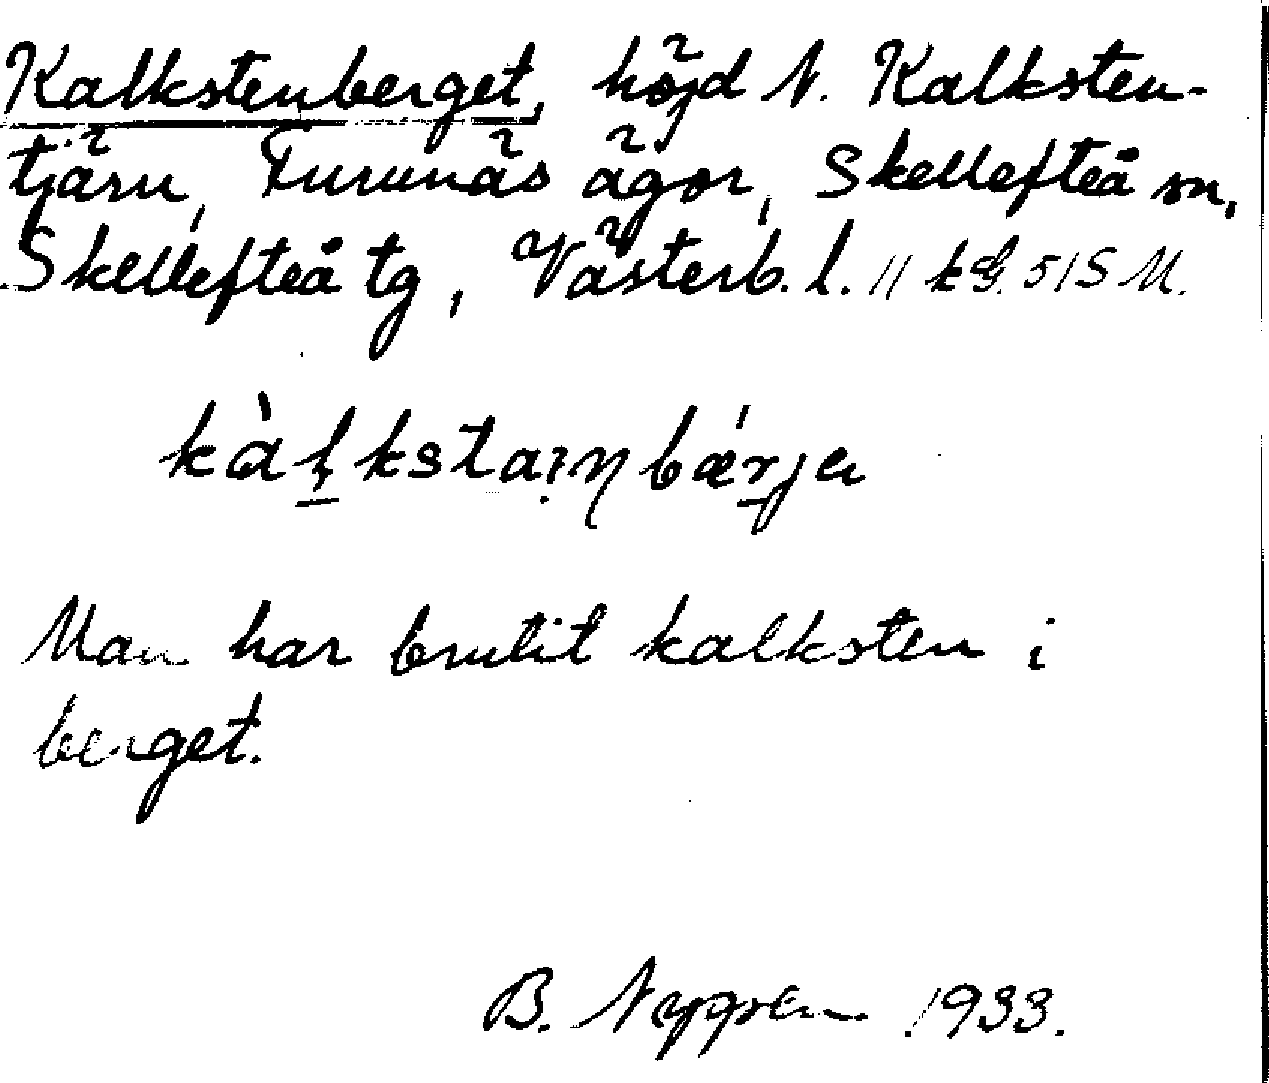 Kalkstenberget, höjd N. Kalksten-
tjärn, Furunäs ägor, Skellefteå sn,
Skellefteå tg, Västerb. l. // kbl. 51 S M.
kàl̥kstaiŋbǽrjа
Man har brutit kalksten i
berget.
B. Nygren 1933.